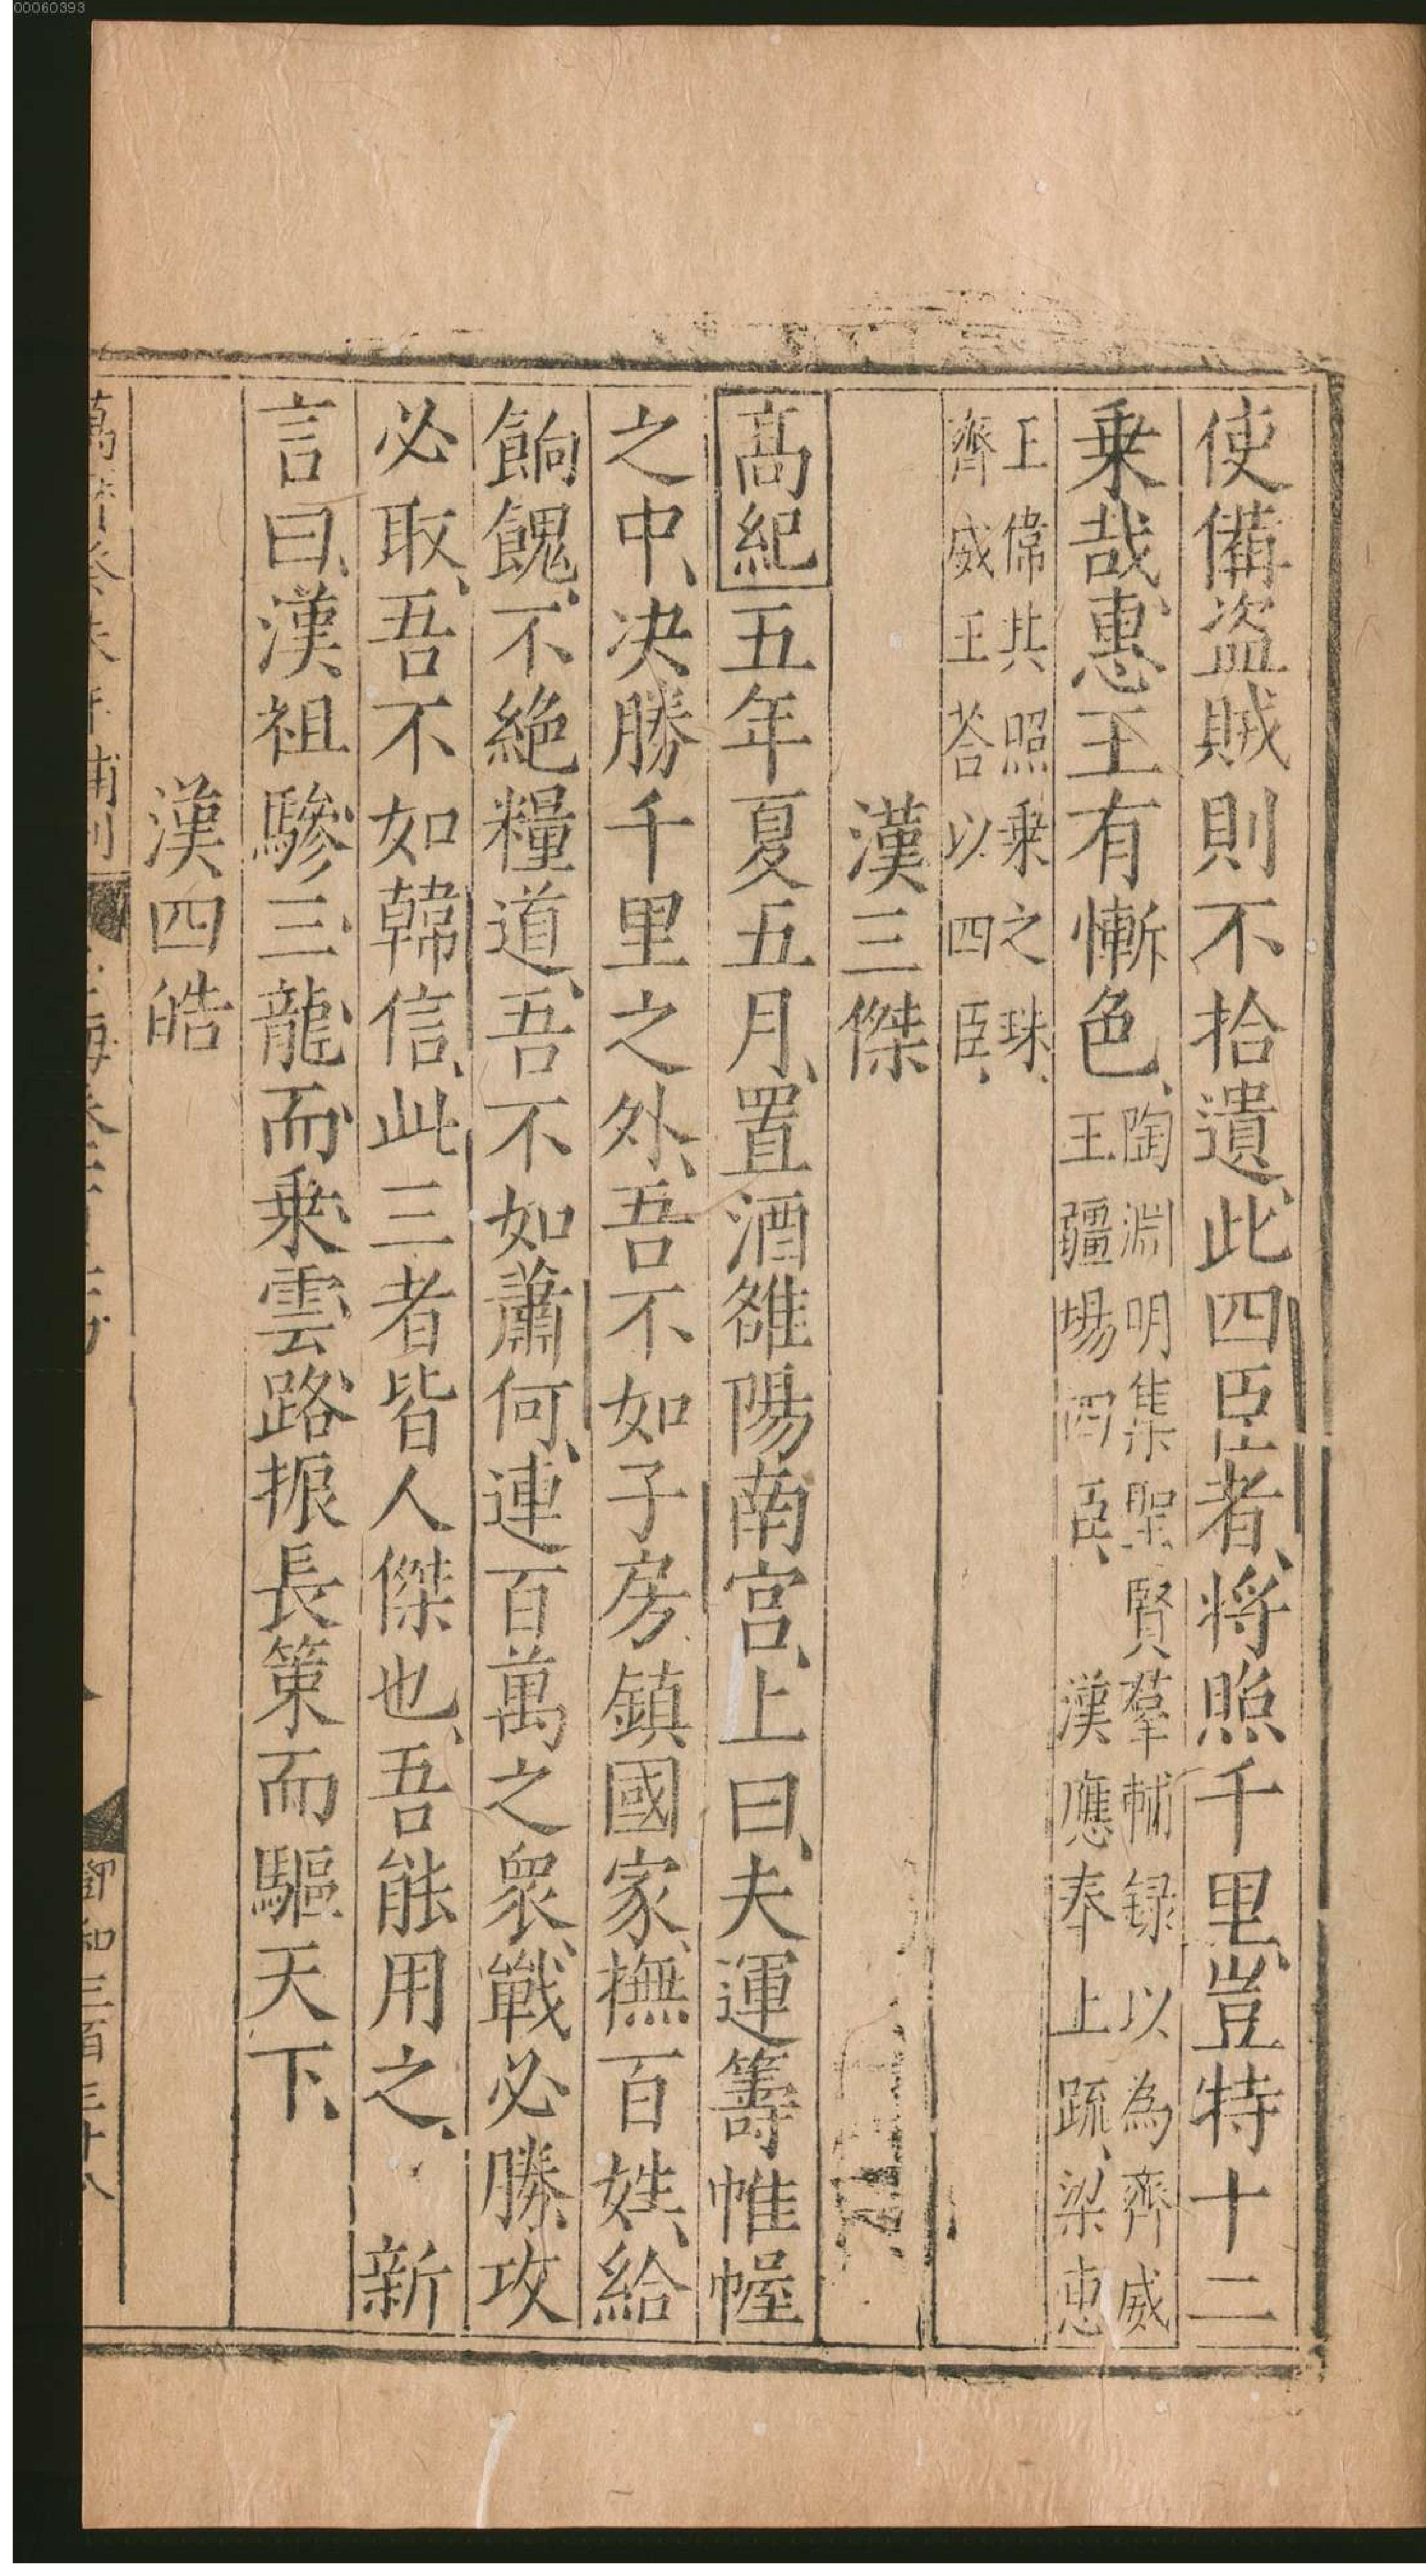 使備盜賊則不拾遺此四臣者將照千里豈特十二
乗哉惠王有慚色
陶淵明集聖賢羣輔録以為齊威
王疆場四臣 漢應奉上疏梁惠
王偉其照乗之珠
齊威王荅以四臣
漢三傑
髙紀五年夏五月置酒雒陽南宫上曰夫運籌帷幄
之中決勝千里之外吾不如子房鎮國家撫百姓給
餉餽不絶糧道吾不如蕭何連百萬之衆戰必勝攻
必取吾不如韓信此三者皆人傑也吾能用之 新
言曰漢祖驂三龍而乗雲路振長策而驅天下
漢四皓
00060393